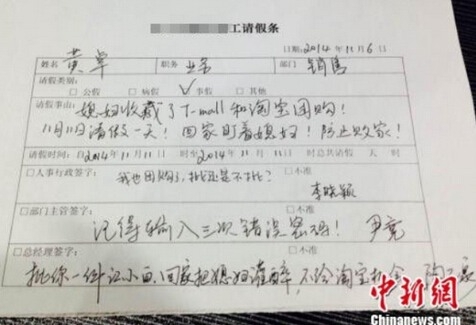 工请假条
日期:2014年11月6日
姓名 黄卓 职务 业务 部门 销售
请假类别:
□公假 □病假 ☑事假 □其他
请假事由: 媳妇收藏了T-mall和淘宝团购!
11月11日请假一天! 回家盯着媳妇! 防止败家!
请假时间:自2014年11月11日 时至2014年11月11日 时总共请假 天 时
□人事行政签字: □不准
我也团购了,批还是不批?
李晓颖
□部门主管签字: □不准
记得输入三次错误密码! 尹亮
□总经理签字: □不准
批你一件江小白,回家把媳妇灌醉,不给淘宝机会
中新网